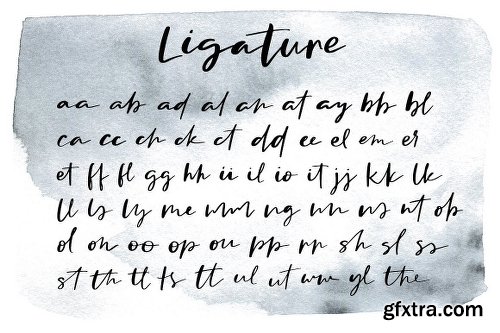 Ligature
aa ab ad al an at ay bb bl
ca cc ch ck ct dd ee el em er
et ff fl gg hh ii il io it jj kk lk
ll ls ly me mm ng nn ns nt ob
ol on oo op ou pp rr sh sl ss
st th tl ts tt ul ut wm yl the
gfxtra.com